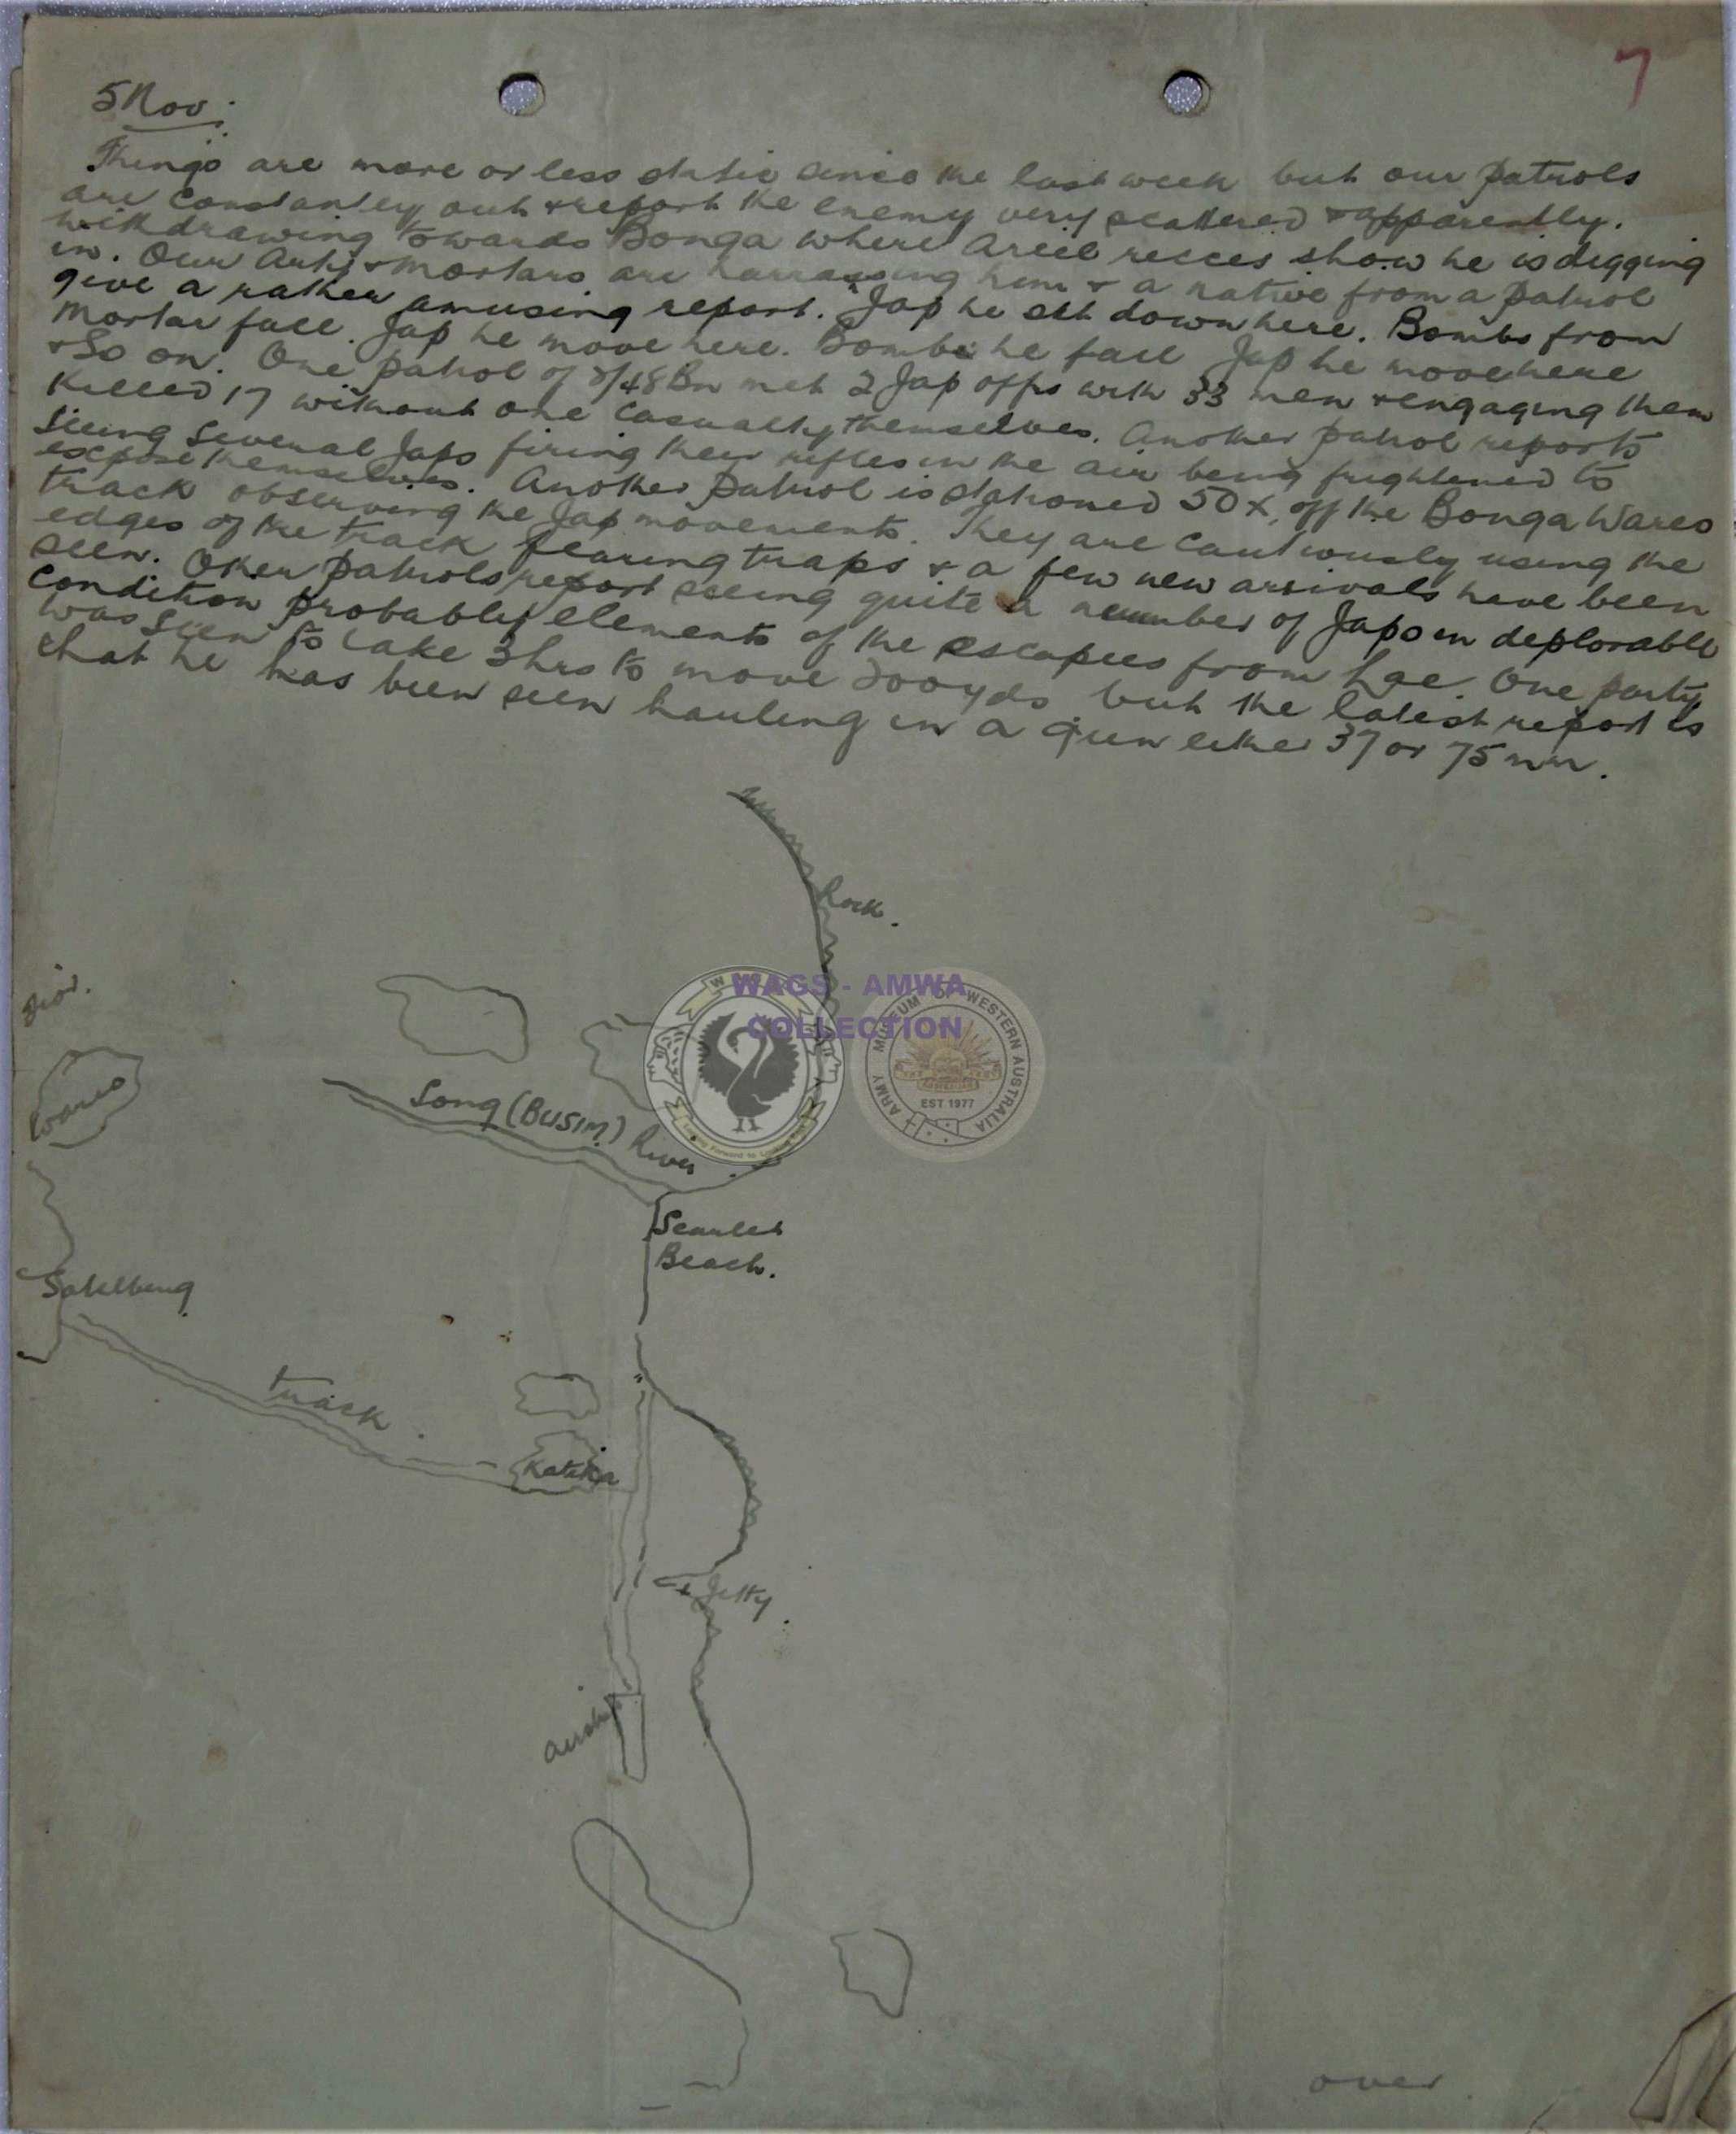 7
5 Nov.
Things are more or less static since the last week but our patrols
are constantly out & report the enemy very scattered & apparently
withdrawing towards Bonga where Areil recces show he is digging
in. Our Arty & mortars are harrassing him & a native from a patrol
give a rather amusing report. Jap he sit down here. Bombs from
mortar fall. Jap he move here. Bombs he fall Jap he move here
& so on. One patrol of 2/48 Bn met 2 Jap offrs with 33 men & engaging them
killed 17 without one casualty themselves. Another patrol reports
seeing several Japs firing their rifles in the air being frightened to
expose themselves. Another patrol is stationed 50x off the Bonga Wareo
track observing the Jap movements. They are cautiously using the
edges of the track fearing traps & a few new arrivals have been
seen. Other patrols report seeing quite a number of Japs in deplorable
condition probably elements of the escapees from Lae. One party
was seen to take 3 hrs to move 200 yds but the latest report is
that he has been seen hauling in a gun either 37 or 75 mm.
Rock.
WAGS - AMWA
COLLECTION
ARMY MUSEUM OF WESTERN AUSTRALIA
EST 1977
Wareo
Song (BUSIM) River
Scarlet
Beach.
Satelberg
track.
Katika
Jetty.
airstrip
over